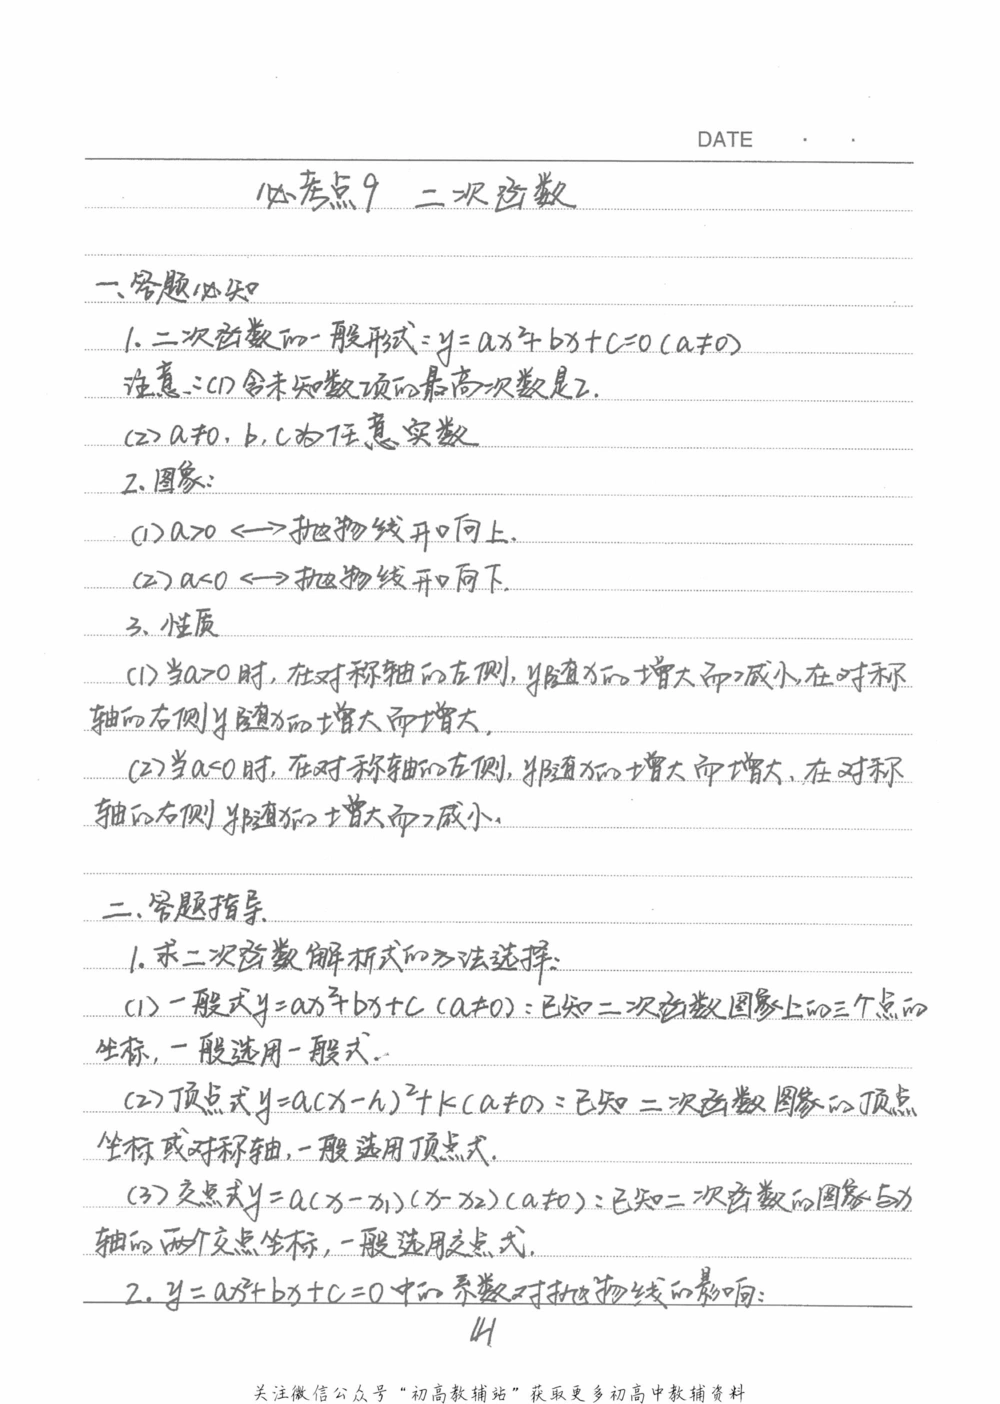 DATE · ·
必考点9 二次函数
一、答题必知
1. 二次函数的一般形式:y=ax²+bx+c=0(a≠0)
注意:(1)含未知数项的最高次数是2.
(2)a≠0,b,c为任意实数
2. 图象:
(1)a>0 <—>抛物线开口向上.
(2)a<0 <—>抛物线开口向下.
3、性质
(1)当a>0时,在对称轴的左侧,y随x的增大而减小,在对称
轴的右侧y随x的增大而增大.
(2)当a<0时,在对称轴的左侧,y随x的增大而增大、在对称
轴的右侧y随x的增大而减小.
二、答题指导
1. 求二次函数解析式的方法选择:
(1)一般式y=ax²+bx+c(a≠0):已知二次函数图象上的三个点的
坐标,一般选用一般式.
(2)顶点式y=a(x-h)²+k(a≠0):已知二次函数图象的顶点
坐标或对称轴,一般选用顶点式.
(3)交点式y=a(x-x₁)(x-x₂)(a≠0):已知二次函数的图象与x
轴的两个交点坐标,一般选用交点式.
2. y=ax²+bx+c=0中的系数对抛物线的影响:
141
关注微信公众号“初高教辅站”获取更多初高中教辅资料